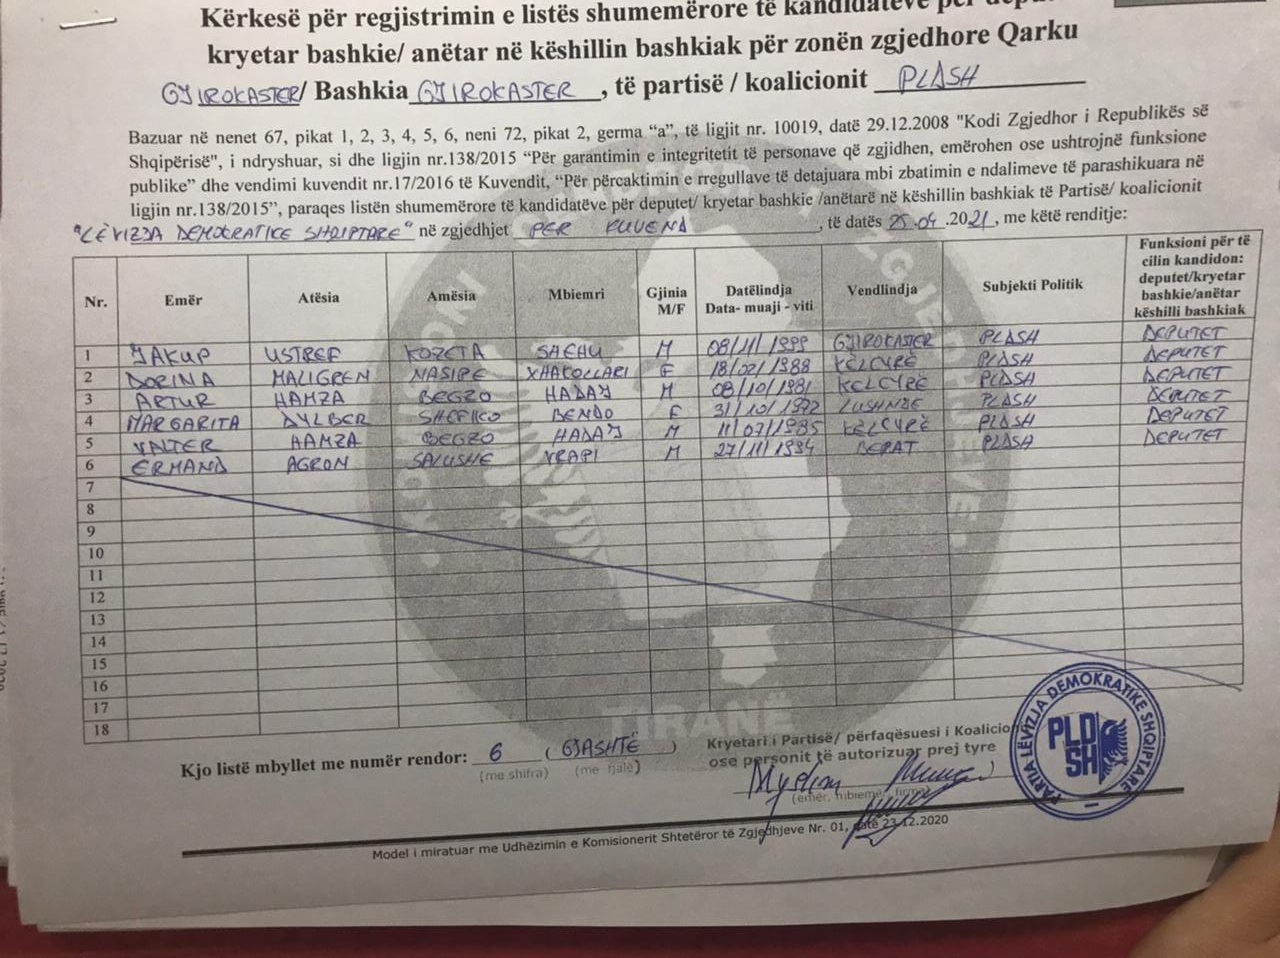 Kërkesë për regjistrimin e listës shumemërore të kandidatëve për
kryetar bashkie/ anëtar në këshillin bashkiak për zonën zgjedhore Qarku
GJIROKASTER/ Bashkia GJIROKASTER, të partisë / koalicionit PLDSH
Bazuar në nenet 67, pikat 1, 2, 3, 4, 5, 6, neni 72, pikat 2, germa “a”, të ligjit nr. 10019, datë 29.12.2008 "Kodi Zgjedhor i Republikës së
Shqipërisë", i ndryshuar, si dhe ligjin nr.138/2015 “Për garantimin e integritetit të personave që zgjidhen, emërohen ose ushtrojnë funksione
publike” dhe vendimi kuvendit nr.17/2016 të Kuvendit, “Për përcaktimin e rregullave të detajuara mbi zbatimin e ndalimeve të parashikuara në
ligjin nr.138/2015”, paraqes listën shumemërore të kandidatëve për deputet/ kryetar bashkie /anëtarë në këshillin bashkiak të Partisë/ koalicionit
"LËVIZJA DEMOKRATIKE SHQIPTARE" në zgjedhjet PËR KUVEND, të datës 25.04.2021, me këtë renditje:
Nr. Emër Atësia Amësia Mbiemri Gjinia M/F Datëlindja Data- muaji - viti Vendlindja Subjekti Politik Funksioni për të cilin kandidon: deputet/kryetar bashkie/anëtar këshilli bashkiak
1 JAKUP USTREF KOZETA SHEHU M 08/11/1999 GJIROKASTER PLDSH DEPUTET
2 DORINA MALIGREN NASIPE XHAKOLLARI F 18/02/1988 KËLCYRË PLDSH DEPUTET
3 ARTUR HAMZA BEGZO HADAJ M 08/10/1981 KËLCYRË PLDSH DEPUTET
4 MARGARITA DYLBER SHEFIKO BENDO F 31/10/1972 LUSHNJE PLDSH DEPUTET
5 VALTER HAMZA BEGZO HADAJ M 11/07/1985 KËLCYRË PLDSH DEPUTET
6 ERMAND AGRON SALUSHE VRAPI M 27/11/1994 BERAT PLDSH DEPUTET
7
8
9
10
11
12
13
14
15
16
17
18
TIRANË
Kjo listë mbyllet me numër rendor: 6 (GJASHTË)
(me shifra) (me fjalë)
Kryetari i Partisë/ përfaqësuesi i Koalicion
ose personit të autorizuar prej tyre
(emër, mbiemër, firma)
PARTIA LËVIZJA DEMOKRATIKE SHQIPTARE
PLD
SH
Model i miratuar me Udhëzimin e Komisionerit Shtetëror të Zgjedhjeve Nr. 01, datë 23.12.2020